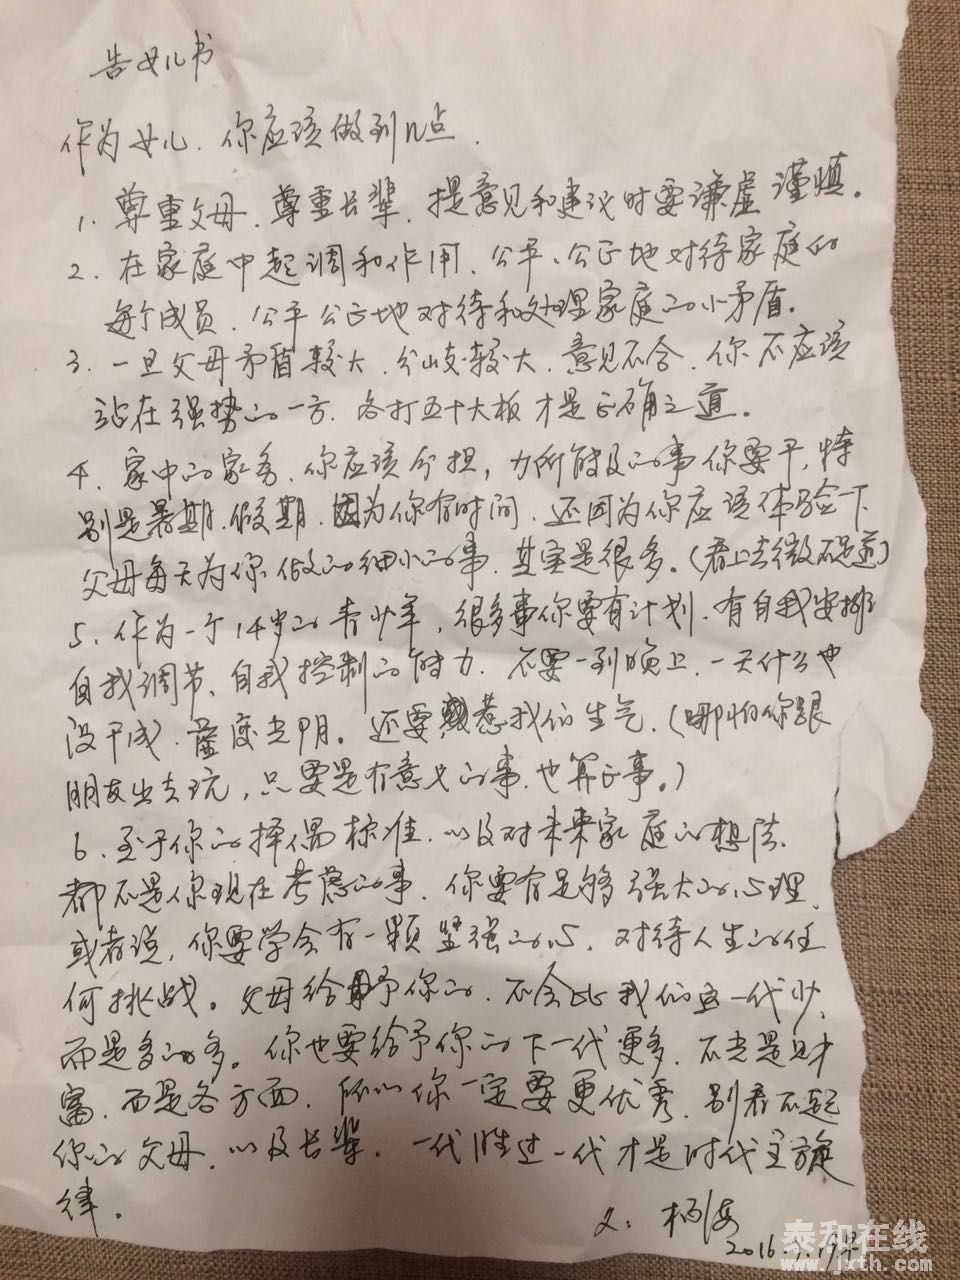 告女儿书
作为女儿、你应该做到几点.
1. 尊重父母、尊重长辈、提意见和建议时要谦虚谨慎。
2、在家庭中起调和作用、公平、公正地对待家庭的
每个成员、公平公正地对待和处理家庭的小矛盾.
3、一旦父母矛盾较大、分歧较大、意见不合、你不应该
站在强势的一方、各打五十大板才是正确之道。
4、家中的家务、你应该分担，力所能及的事你要干,特
别是暑期、假期、因为你有时间、还因为你应该体验一下
父母每天为你做的细小的事、其实是很多。(看上去微不足道)
5、作为一个14岁的青少年，很多事你要有计划、有自我安排
自我调节、自我控制的能力、不要一到晚上、一天什么也
没干成、虚度光阴。还要惹我们生气.(哪怕你跟
朋友出去玩，只要是有意义的事、也算正事。)
6、至于你的择偶标准、以及对未来家庭的想法、
都不是你现在考虑的事、你要有足够强大的心理、
或者说，你要学会有一颗坚强的心、对待人生的任
何挑战。父母给予你的、不会比我们这一代少、
而是多的多。你也要给予你的下一代更多、不光是财
富、而是各方面、所以你一定要更优秀、别看不起
你的父母、以及长辈、一代胜过一代才是时代主旋
律。
父：
2016
泰和在线
www.jxth.com